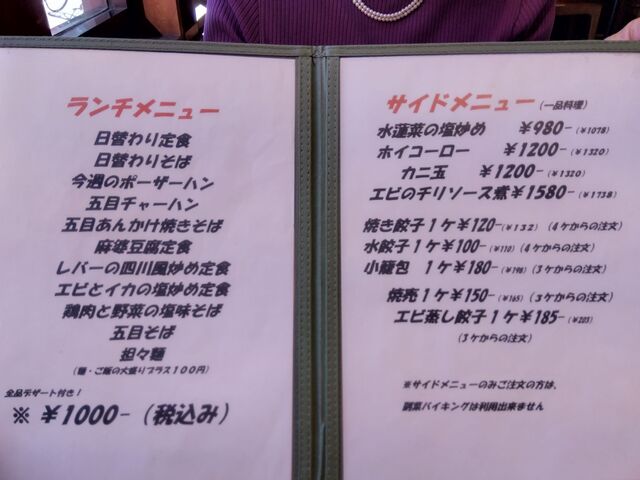 ランチメニュー
日替わり定食
日替わりそば
今週のポーザーハン
五目チャーハン
五目あんかけ焼きそば
麻婆豆腐定食
レバーの四川風炒め定食
エビとイカの塩炒め定食
鶏肉と野菜の塩味そば
五目そば
担々麺
(麺・ご飯の大盛りプラス100円)
全品デザート付き！
※ ¥1000-(税込み)
サイドメニュー(一品料理)
水蓮菜の塩炒め ¥980-(¥1078)
ホイコーロー ¥1200-(¥1320)
カニ玉 ¥1200-(¥1320)
エビのチリソース煮¥1580-(¥1738)
焼き餃子1ケ¥120-(¥132) (4ケからの注文)
水餃子1ケ¥100-(¥110) (4ケからの注文)
小籠包 1ケ¥180-(¥198) (3ケからの注文)
焼売1ケ¥150-(¥165) (3ケからの注文)
エビ蒸し餃子1ケ¥185-(¥203)
(3ケからの注文)
※サイドメニューのみご注文の方は、
副菜バイキングは利用出来ません